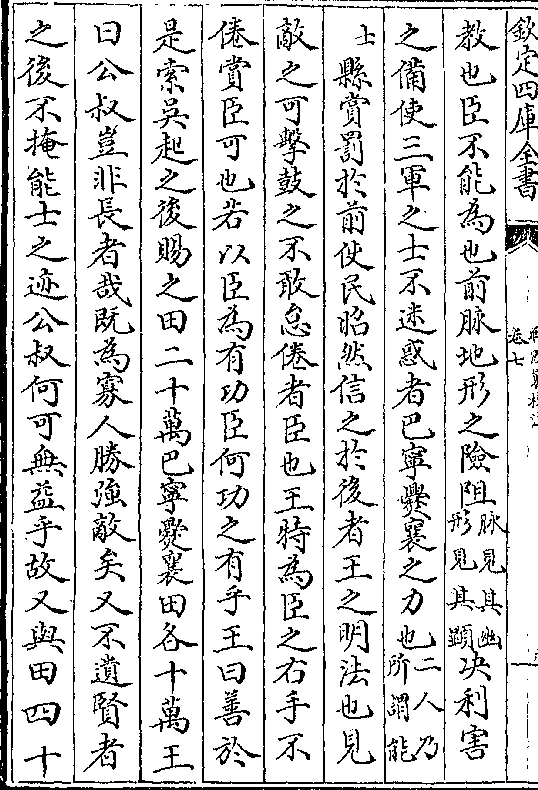 欽定四庫全書
卷七
教也臣不能為也前脉地形之險阻脉見其幽形見其顯决利害
之備使三軍之士不迷惑者巴寧爨襄之力也二人乃所謂能
士縣賞罰於前使民昭然信之於後者王之明法也見
敵之可擊鼓之不敢怠倦者臣也王特為臣之右手不
倦賞臣可也若以臣為有功臣何功之有乎王曰善於
是索吳起之後賜之田二十萬巴寧爨襄田各十萬王
曰公叔豈非長者哉既為寡人勝強敵矣又不遺賢者
之後不掩能士之迹公叔何可無益乎故又與田四十